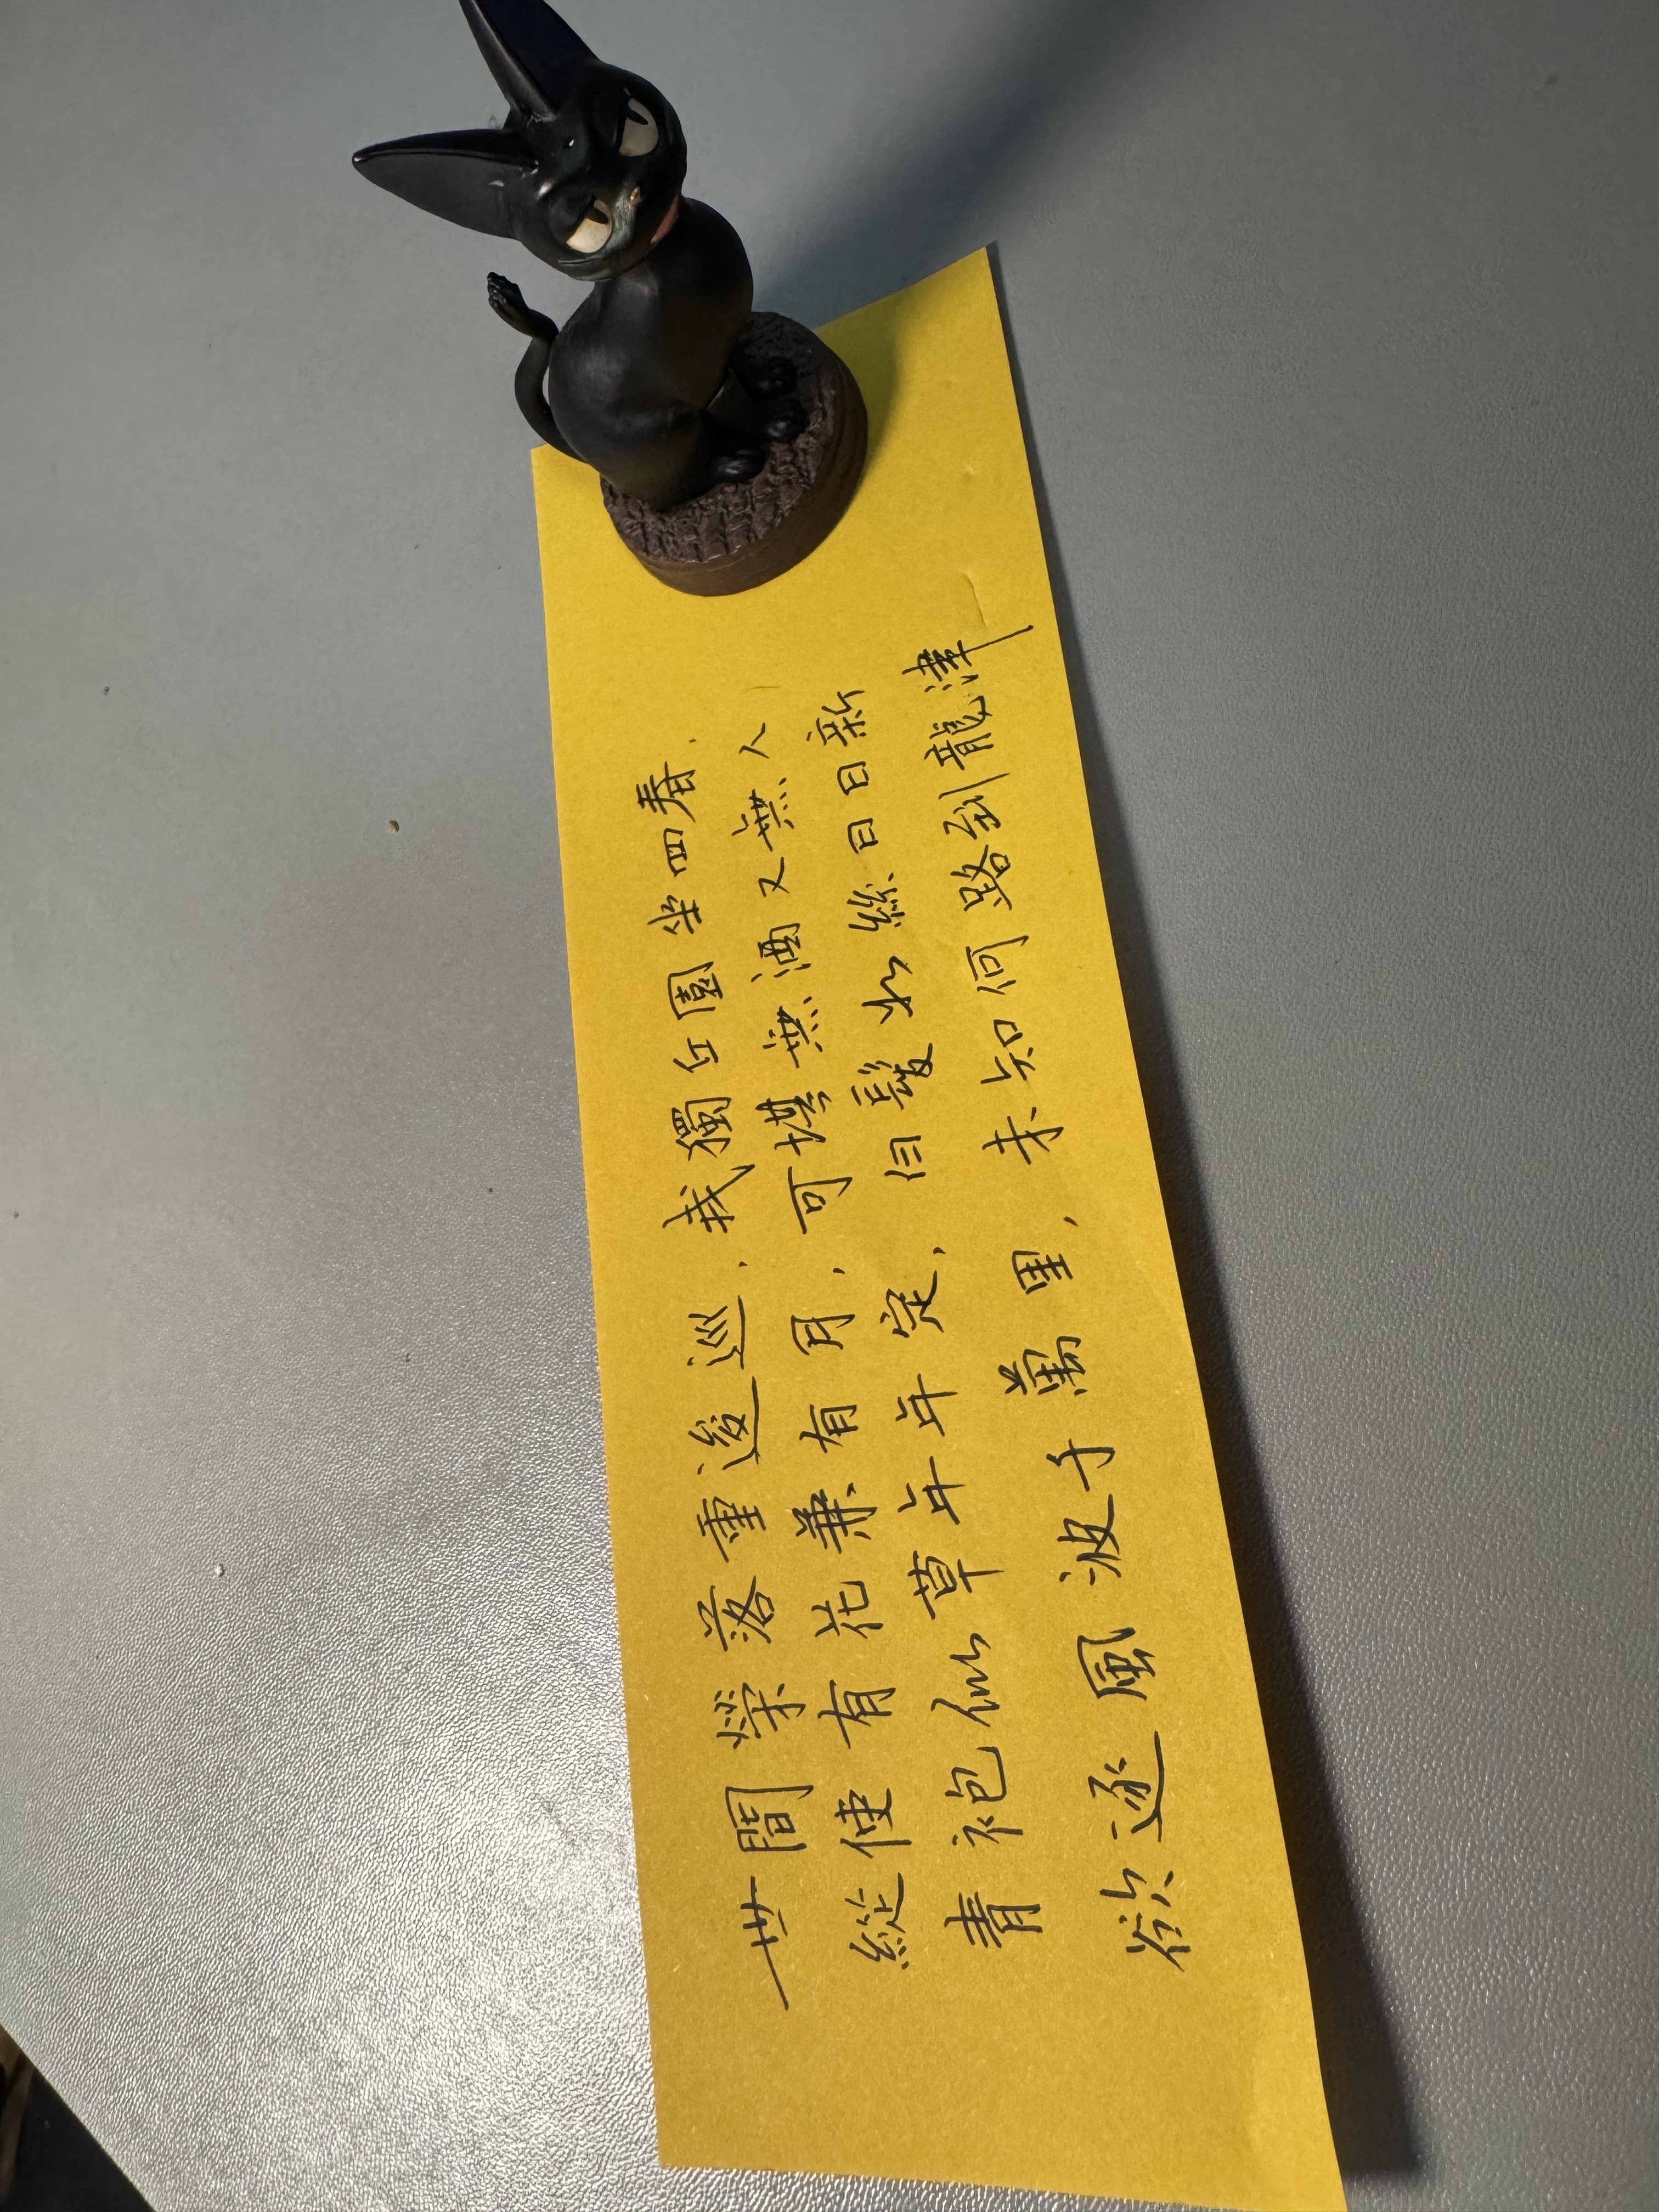 世間榮落重逡巡,我獨丘園坐四春.
縱使有花兼有月,可堪無酒又無人
青袍似草年年定,白髮如絲日日新
欲逐風波千萬里,未知何路到龍津